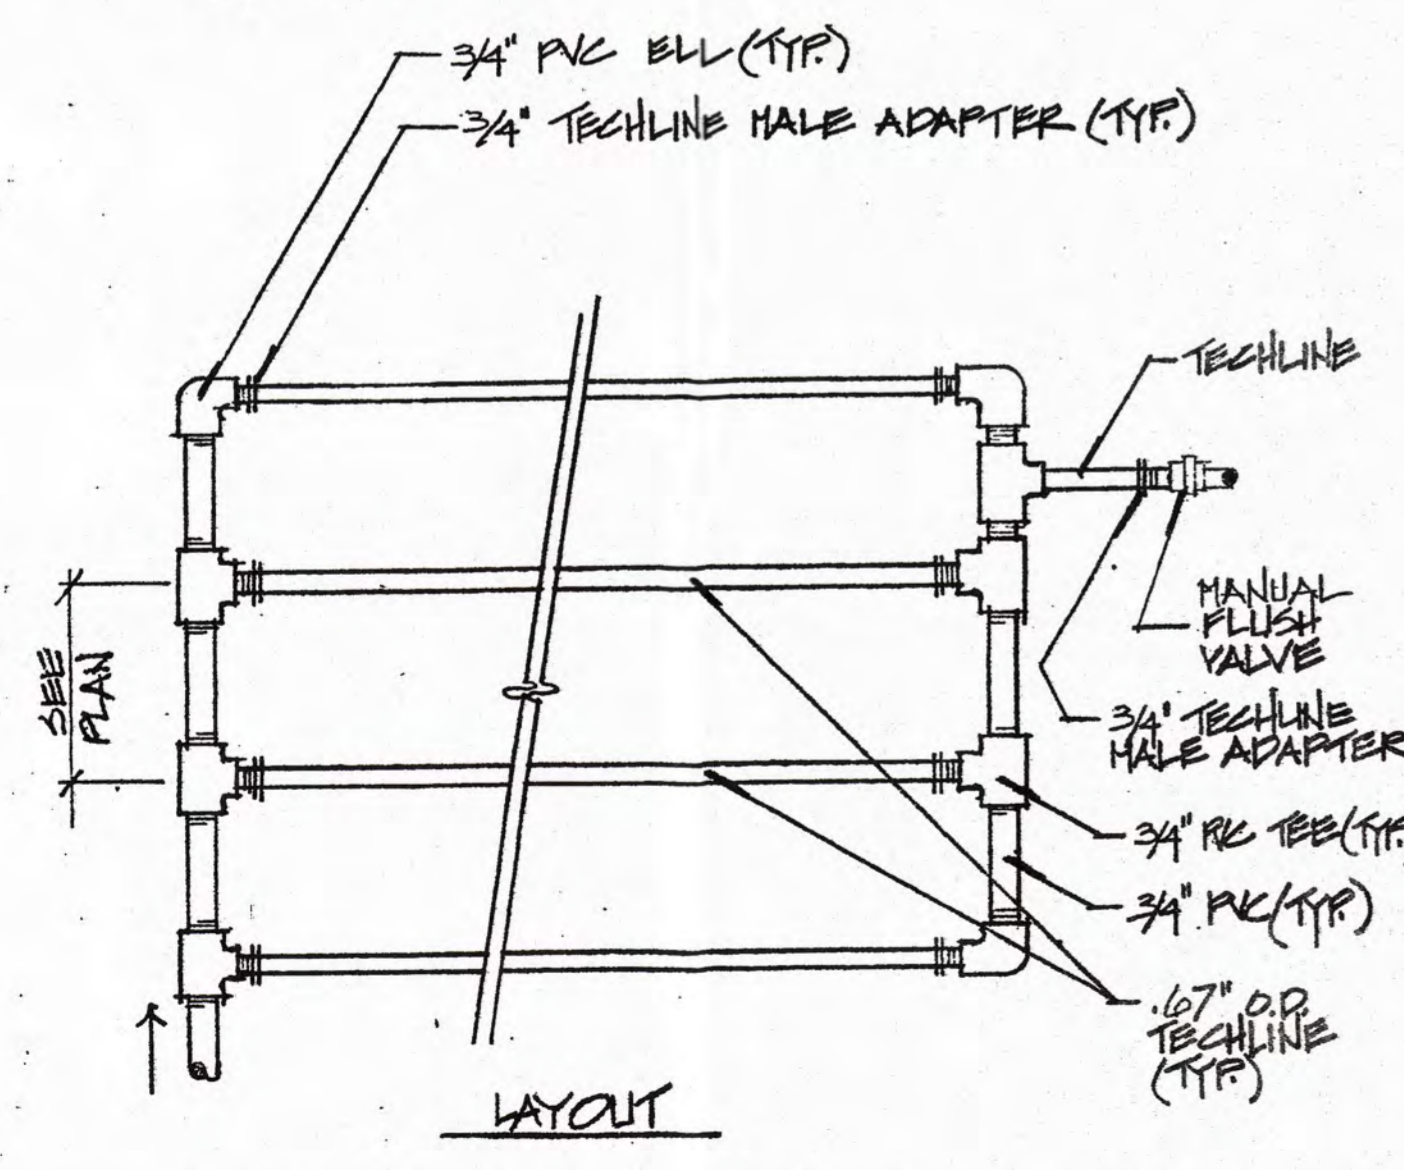 3/4" PVC ELL (TYP.)
3/4" TECHLINE MALE ADAPTER (TYP.)
TECHLINE
MANUAL
FLUSH
VALVE
3/4" TECHLINE
MALE ADAPTER
SEE
PLAN
3/4" PVC TEE (TYP.
3/4" PVC (TYP.)
.67" O.D.
TECHLINE
(TYP.)
LAYOUT